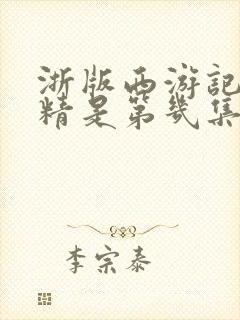 浙版西游記
精是第幾集
李宗泰